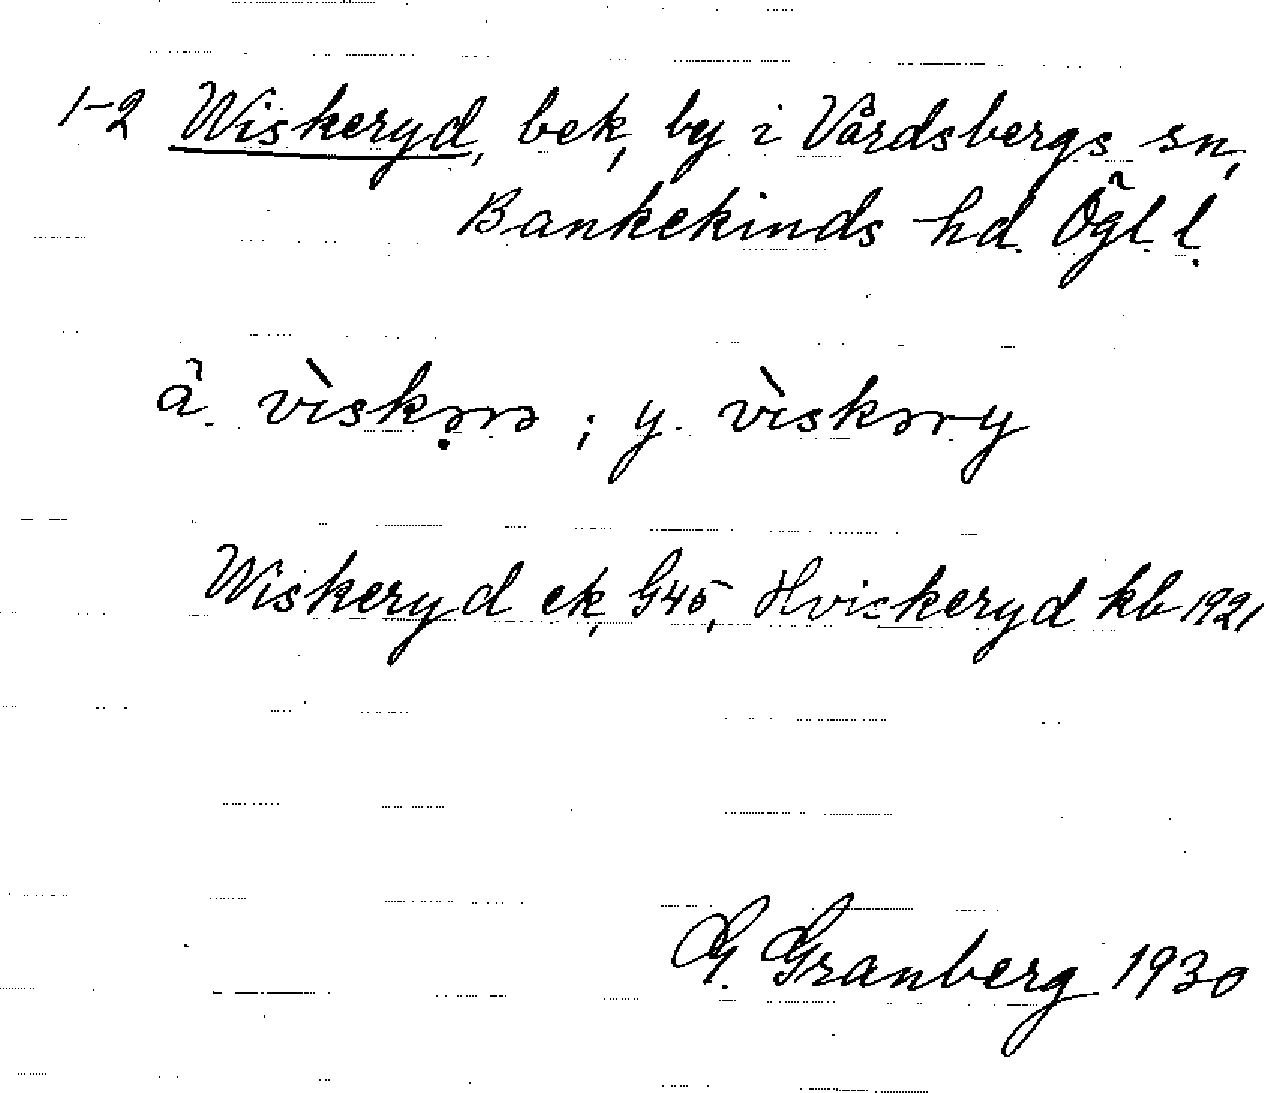 1-2 Wiskeryd, bek, by i Vårdsbergs sn,
Bankekinds hd. Ögl l.
ä. vìskə̣rə ; y. vìskəry
Wiskeryd ek, G45, Hviskeryd kb 1921
G. Granberg 1930